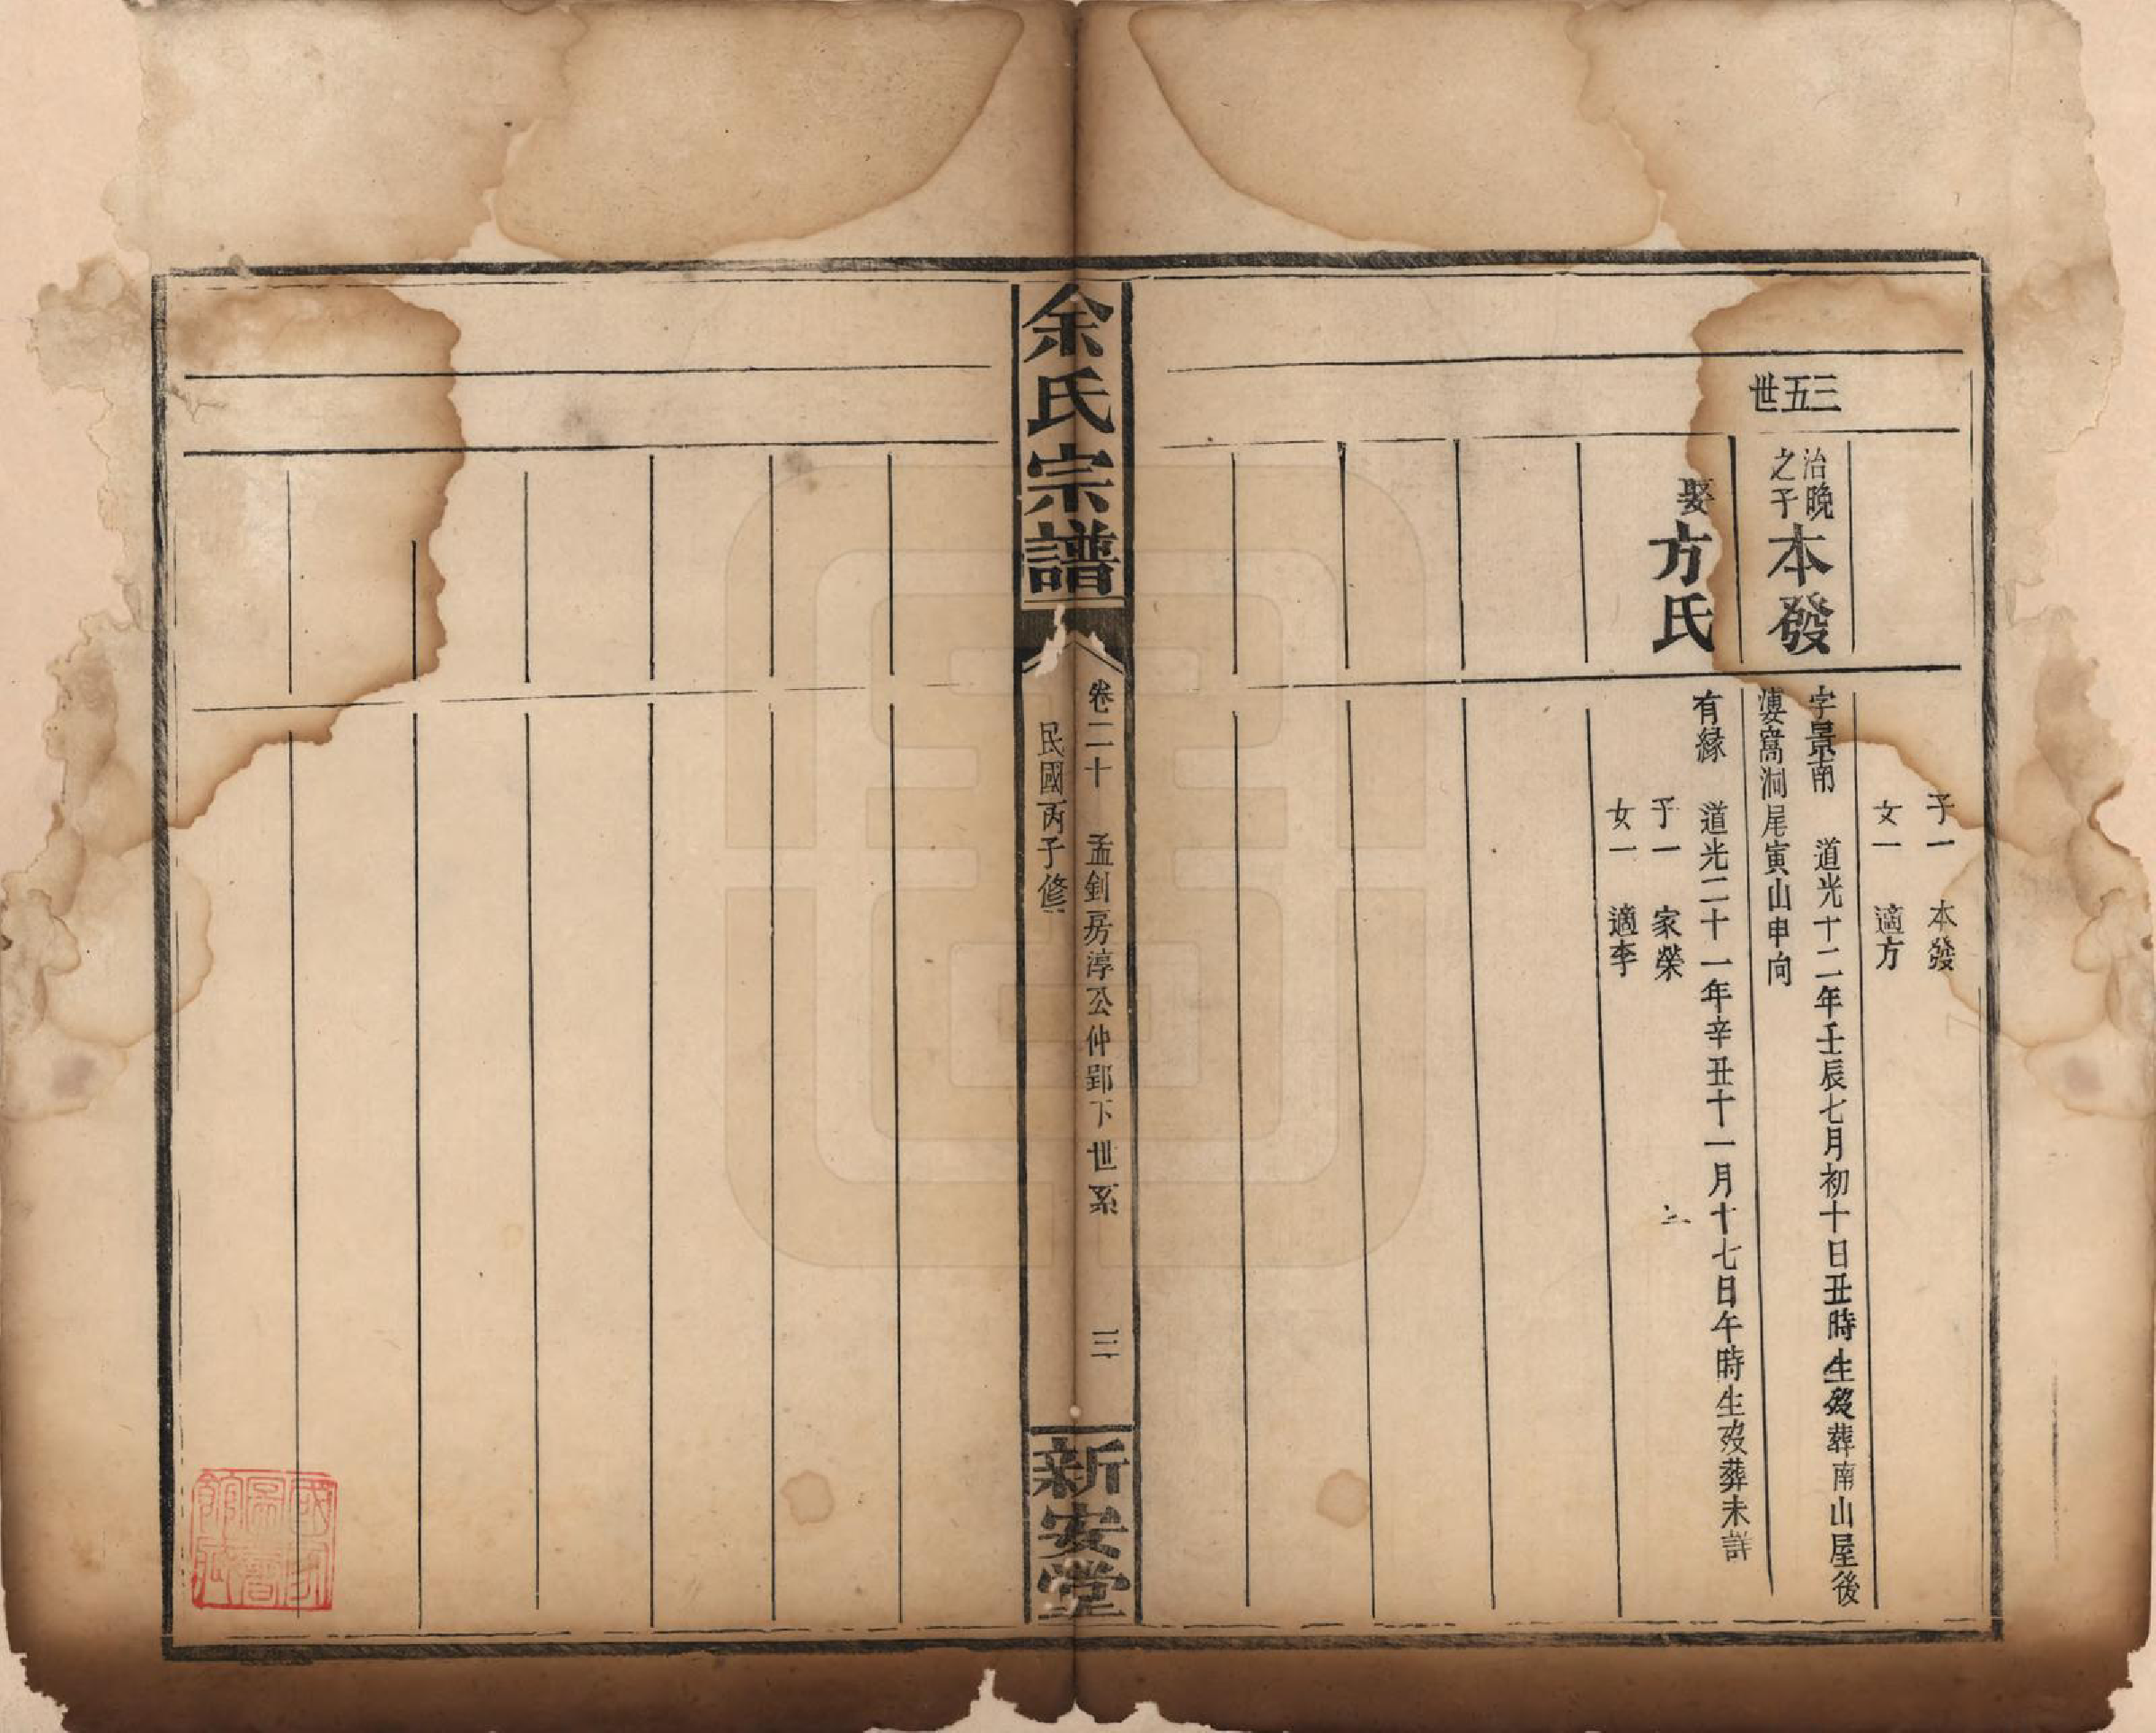 三五世
子一　本發
女一　適方
治晚之子
本發
字景南　道光十二年壬辰七月初十日丑時生歿葬南山屋後
窩洞尾寅山申向
娶方氏
有緣　道光二十一年辛丑十一月十七日午時生歿葬未詳
子一　家榮
女一　適李
余氏宗譜
卷二十　孟釗房淳公仲郢下世系　三
民國丙子修
新安堂